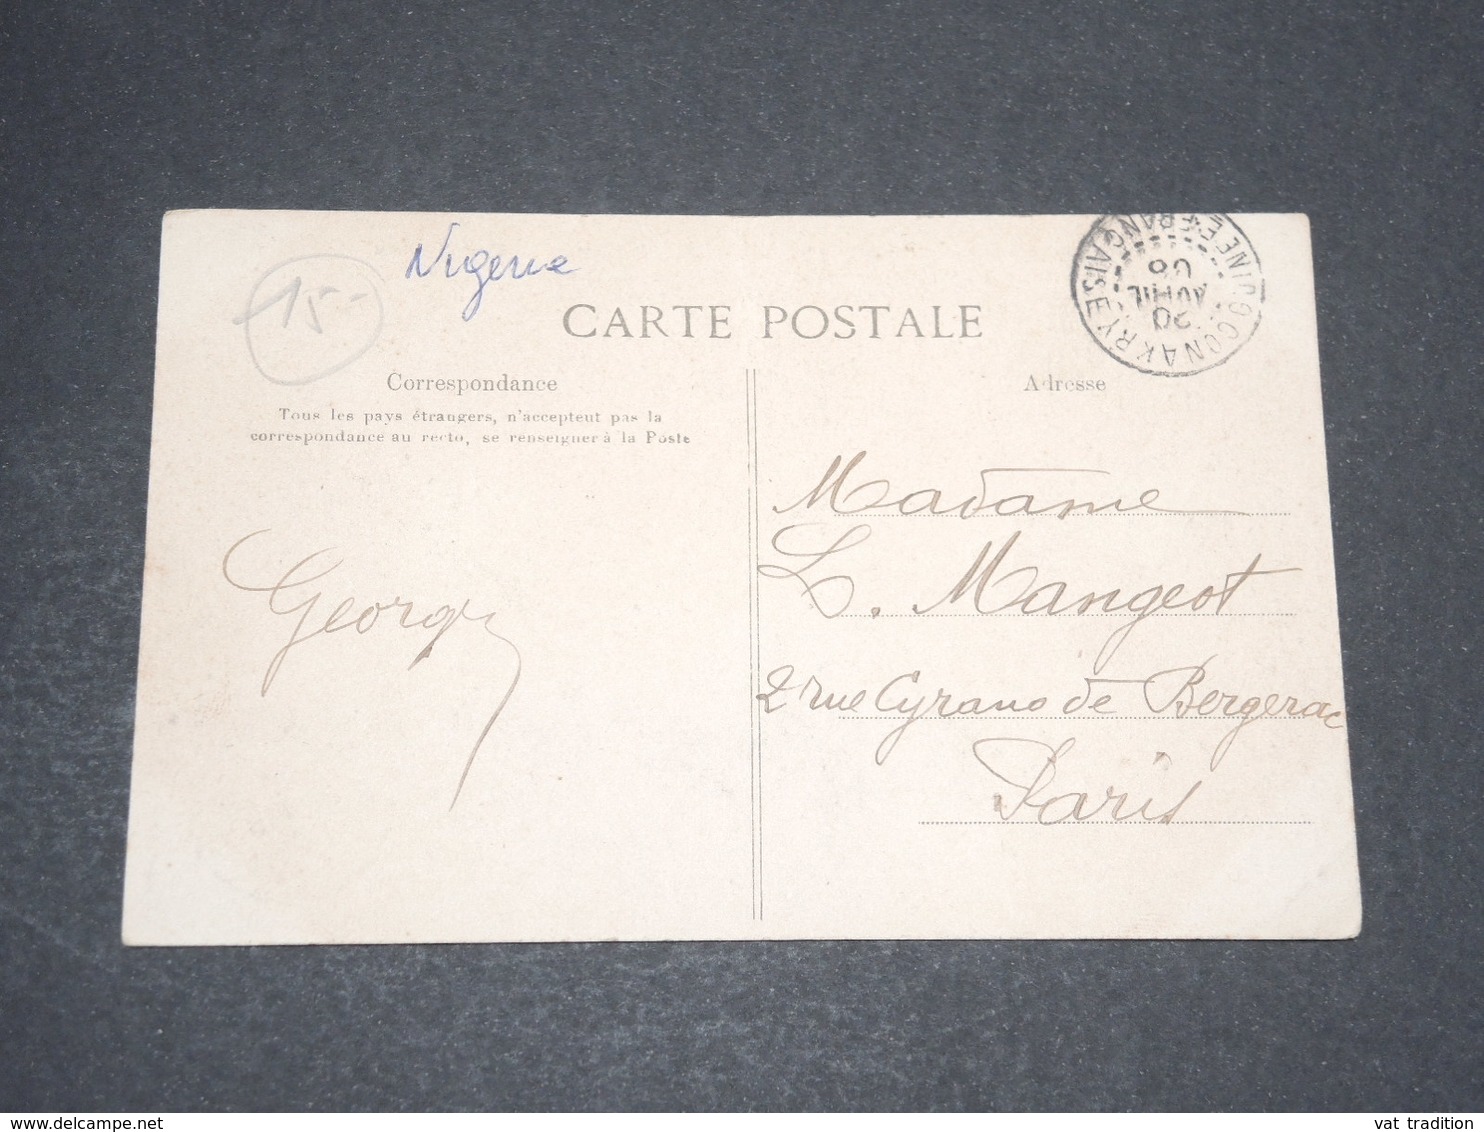 Nigerie
15-
CARTE POSTALE
CONAKRY
GUINÉE FRANÇAISE
20
AVRIL
08
Correspondance
Adresse
Tous les pays étrangers, n'acceptent pas la
correspondance au recto, se renseigner à la Poste
Madame
L. Mangeot
2 rue Cyrano de Bergerac
Paris
George
vat tradition